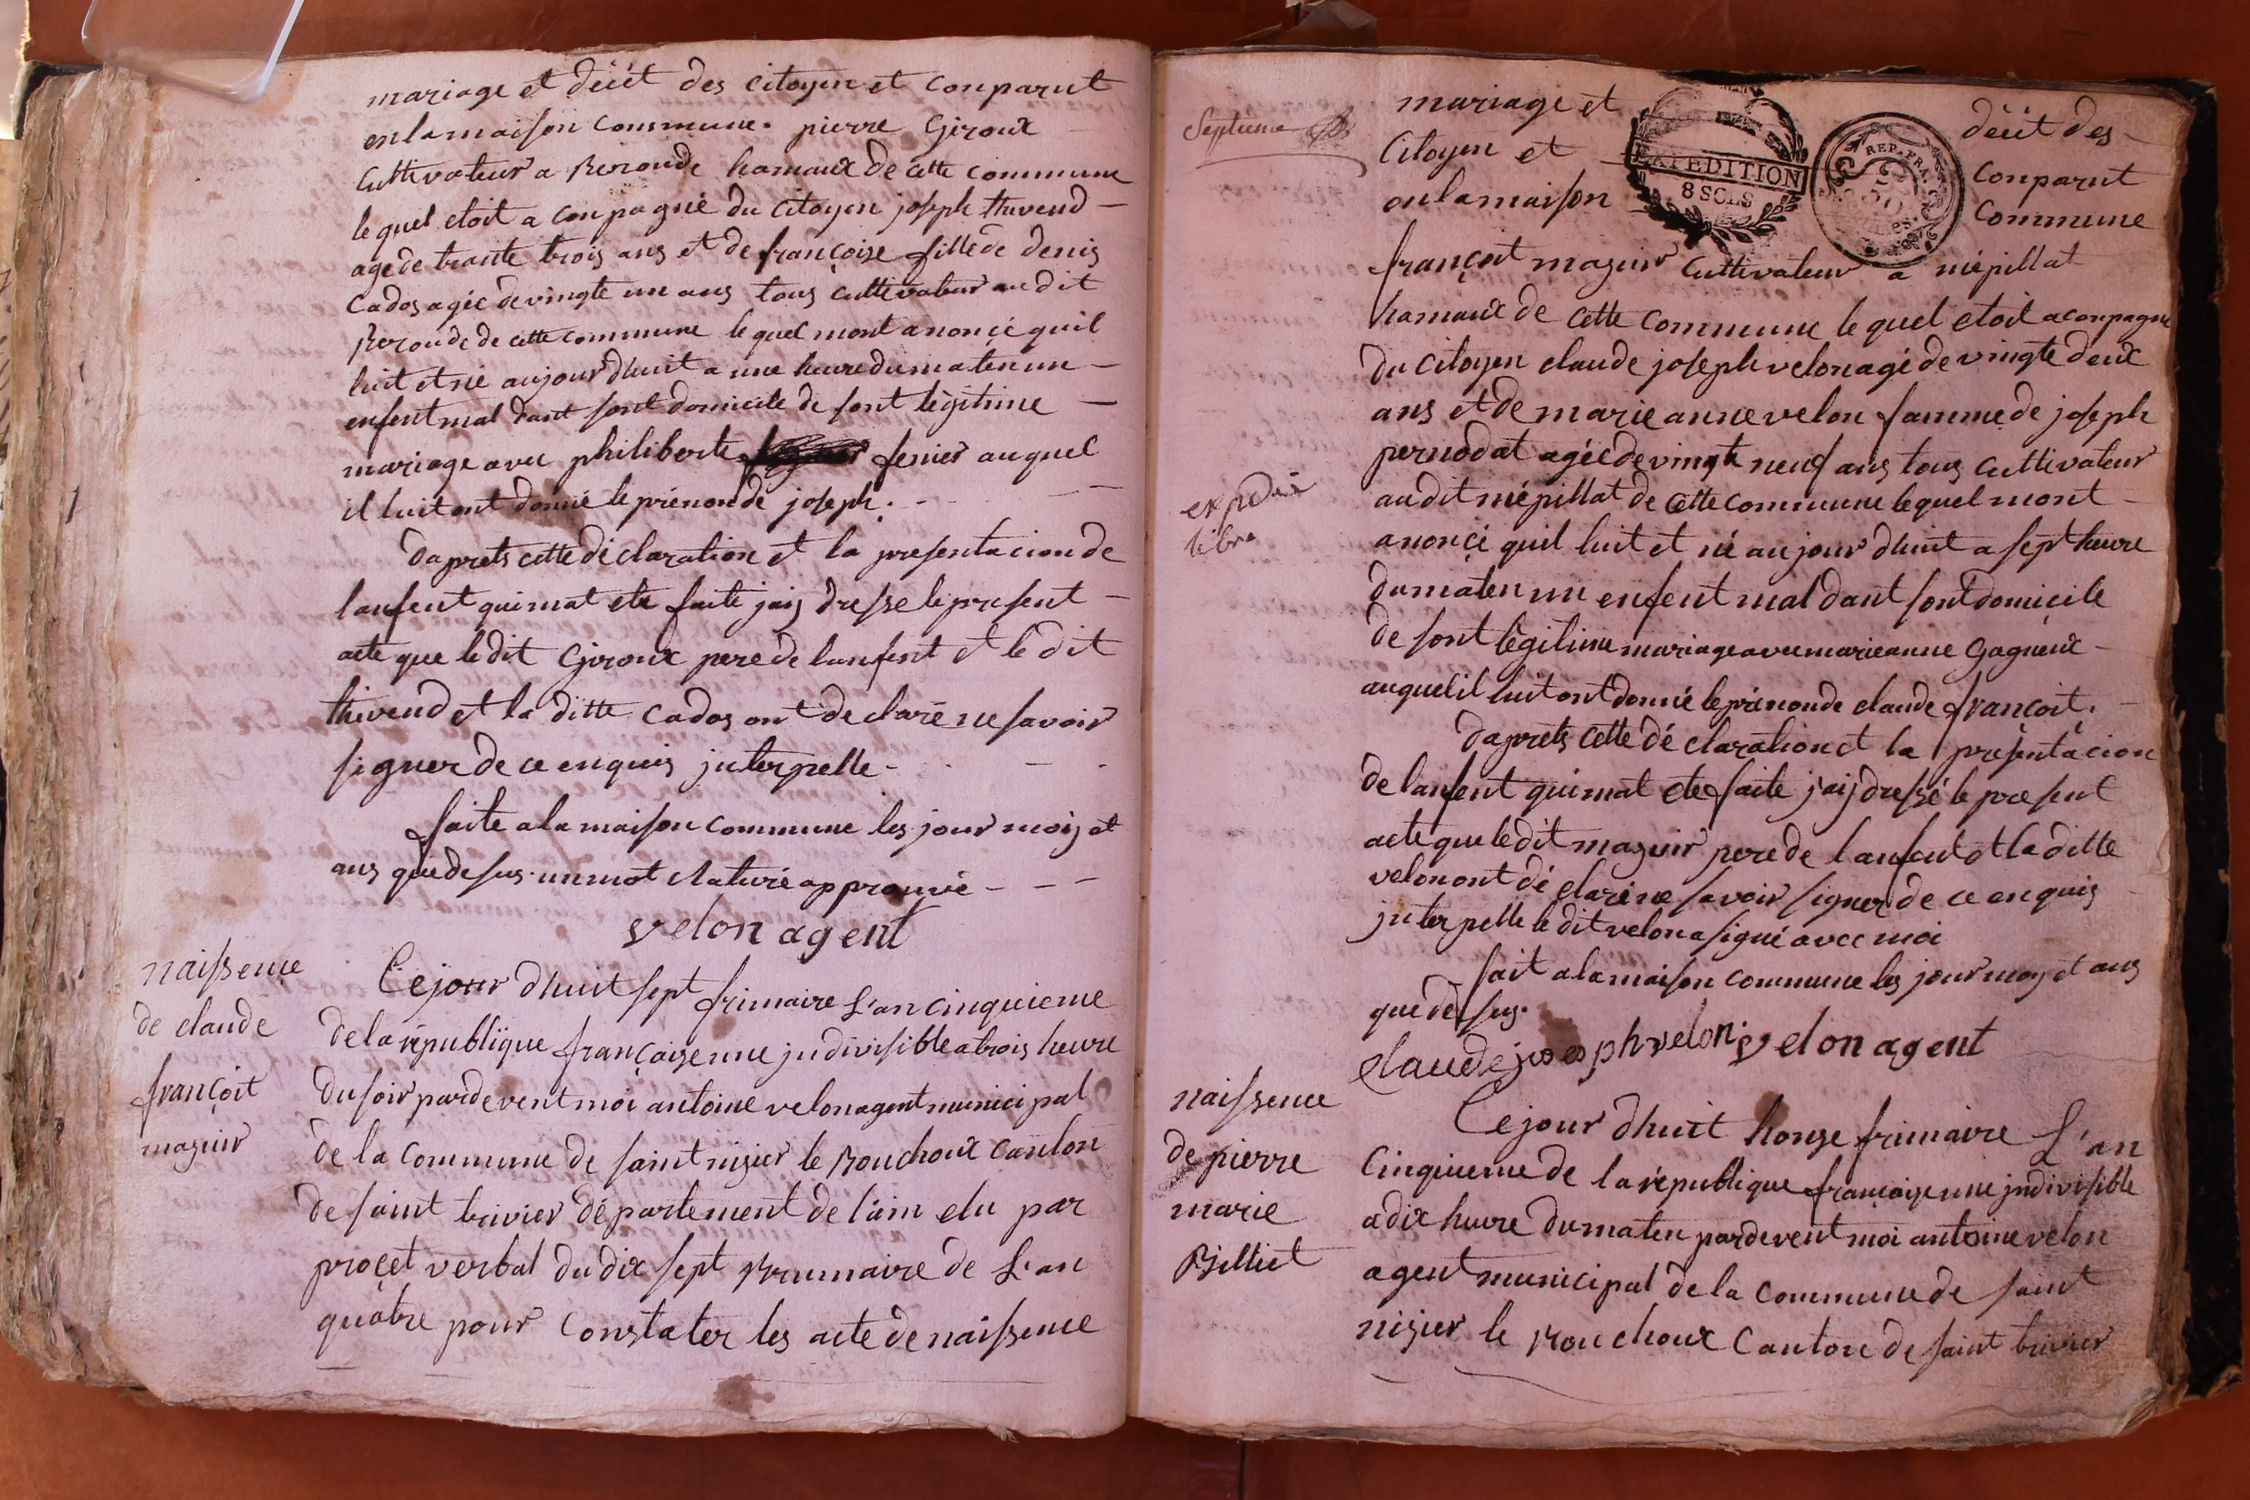 mariage et décét des citoyen et conparut
en la maison commune. pierre Giroux
Cultivateur a Rironde hamaux de cette commune
le quel etoit a conpagné du Citoyen joseph thivend
agé de trante trois ans et de françoise fille de denis
Cados agéé de vingte un ans tous cultivateur au dit
Rironde de cette commune le quel mont anonçé quil
luit et né aujourdhuit a une heure du maten un
enfent mal dant sont domicile de sont légitime
mariage avec philiberte fenier auquel
il luit ont donné le prénon de joseph.
daprets cette déclaration et la presentacion de
lanfent qui mat ete faite jais dresse le present
acte que le dit Giroux pere de lanfent et le dit
thivend et la ditte Cados ont declaré ne savoir
signer de ce enquis jnterpelle
faite a la maison commune les jour mois et
ans que desus. un mot élaturé approuvé
velon agent
naissençe
de claude
françoit
maguir
Cejour dhuit sept frimaire L'an cinquieme
de la république françaize une jndivisible a trois heure
du soir pardevent moi antoine velon agent municipal
de la Commune de saint nizier le Bouchoux Canton
de saint trivier département de l'ain elu par
proçet verbal du dix sept Brumaire de L'an
quatre pour Constater les acte de naissence
Septième
mariage et décét des
Citoyen et conparut
en la maison commune
EXPEDITION
8 SOLS
REP. FRA.
françoit maguir Cultivateur a népillat
hamaux de cette commune le quel etoit aconpagné
du Citoyen claude joseph velon agé de vingte deux
ans et de marie anne velon famme de joseph
pernodat agéé de vingte neuf ans tous cultivateur
au dit népillat de cette commune lequel mont
anonçé quil luit et né aujourdhuit a sept heure
du maten un enfent mal dant sont domicile
de sont légitime mariage avec marie anne Gagneux
auquel il luit ont donné le prénon de claude françoit.
expedié
libre
daprets cette déclaration et la présentacion
de lanfent qui mat ete faite j'aij dressé le present
acte que le dit maguir pere de lanfent et la ditte
velon ont déclaré ne savoir signer de ce enquis
jnterpelle le dit velon a signé avec moi
fait a la maison commune les jour mois et ans
que desus.
Claude joseph velon velon agent
naissence
de pierre
marie
Billiet
Cejour dhuit honze frimaire L'an
Cinquieme de la république françaize une jndivisible
a dix heure du maten pardevent moi antoine velon
agent municipal de la Commune de saint
nizier le Bouchoux Canton de saint trivier